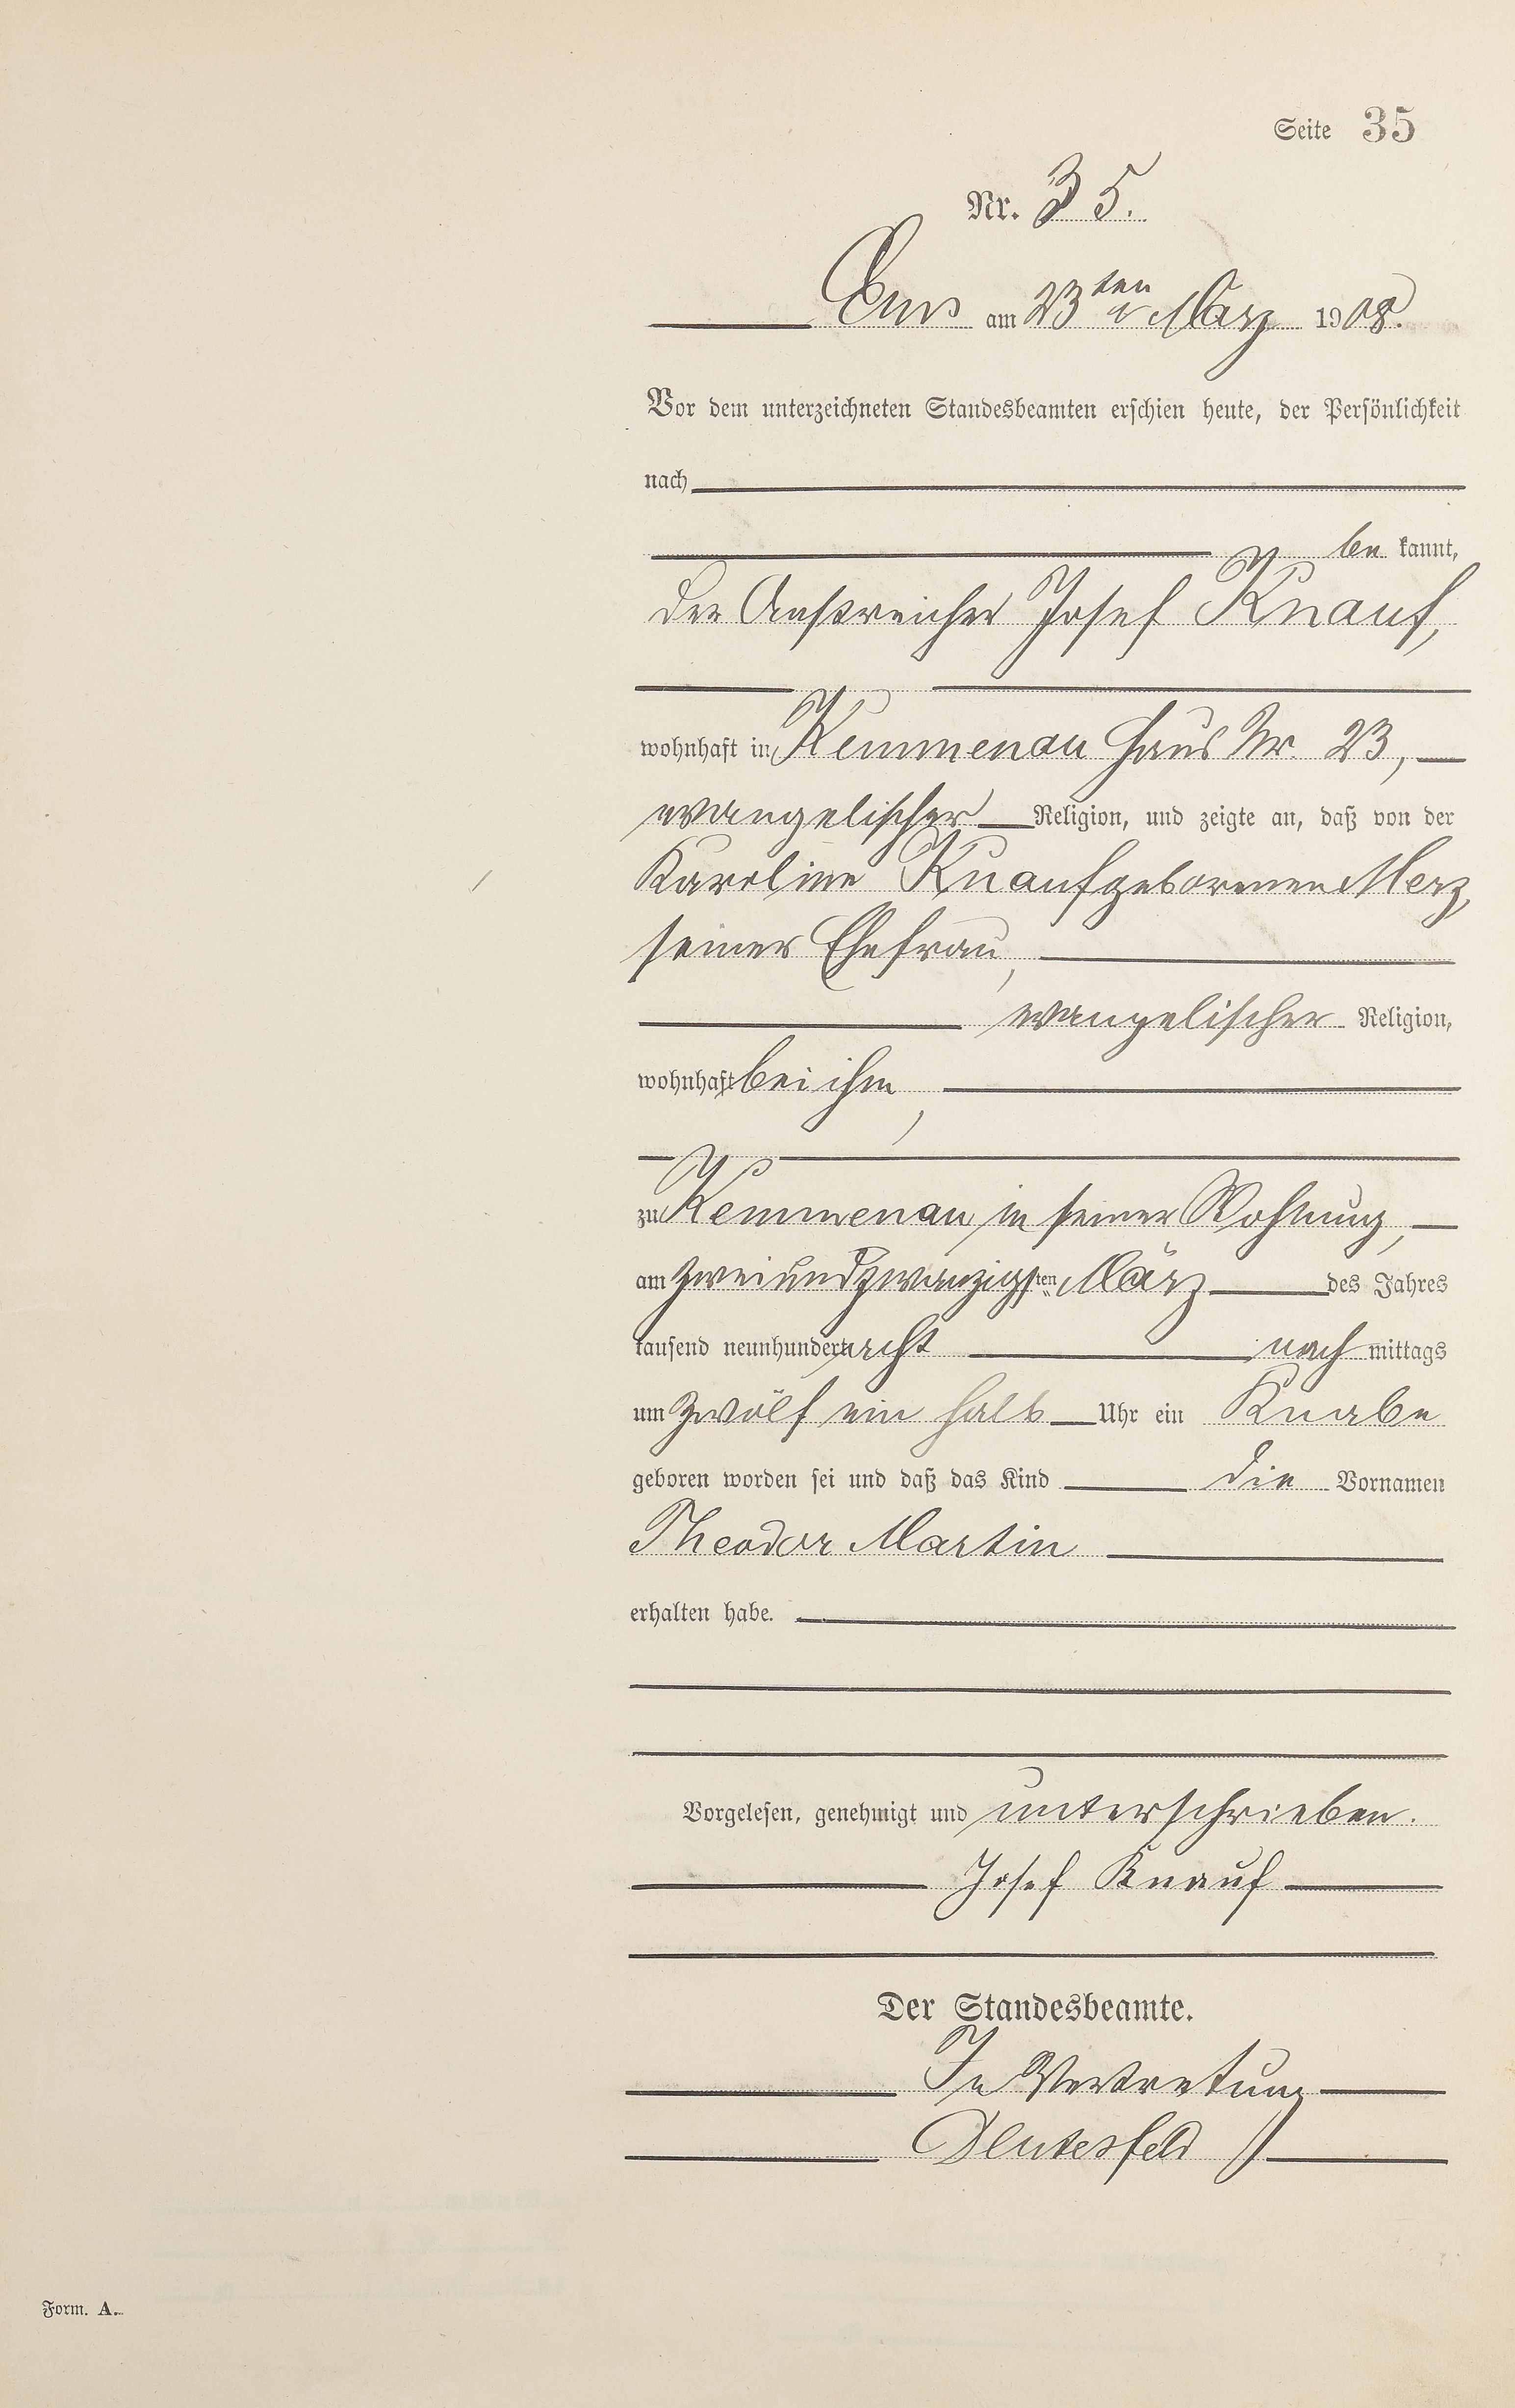 Seite 35
Nr. 35.
Ems am 23ten März 1908.
Vor dem unterzeichneten Standesbeamten erschien heute, der Persönlichkeit
nach
be kannt,
der Anstreicher Josef Knauf,
wohnhaft in Kemmenau Haus Nr. 23,
evangelischer Religion, und zeigte an, daß von der
Karoline Knauf geborenen Merz,
seiner Ehefrau,
evangelischer Religion,
wohnhaft bei ihm,
zu Kemmenau in seiner Wohnung,
am zweiundzwanzigsten März des Jahres
tausend neunhundert acht nach mittags
um zwölf ein halb Uhr ein Knabe
geboren worden sei und daß das Kind die Vornamen
Theodor Martin
erhalten habe.
Vorgelesen, genehmigt und unterschrieben.
Josef Knauf
Der Standesbeamte.
In Vertretung
Form. A.